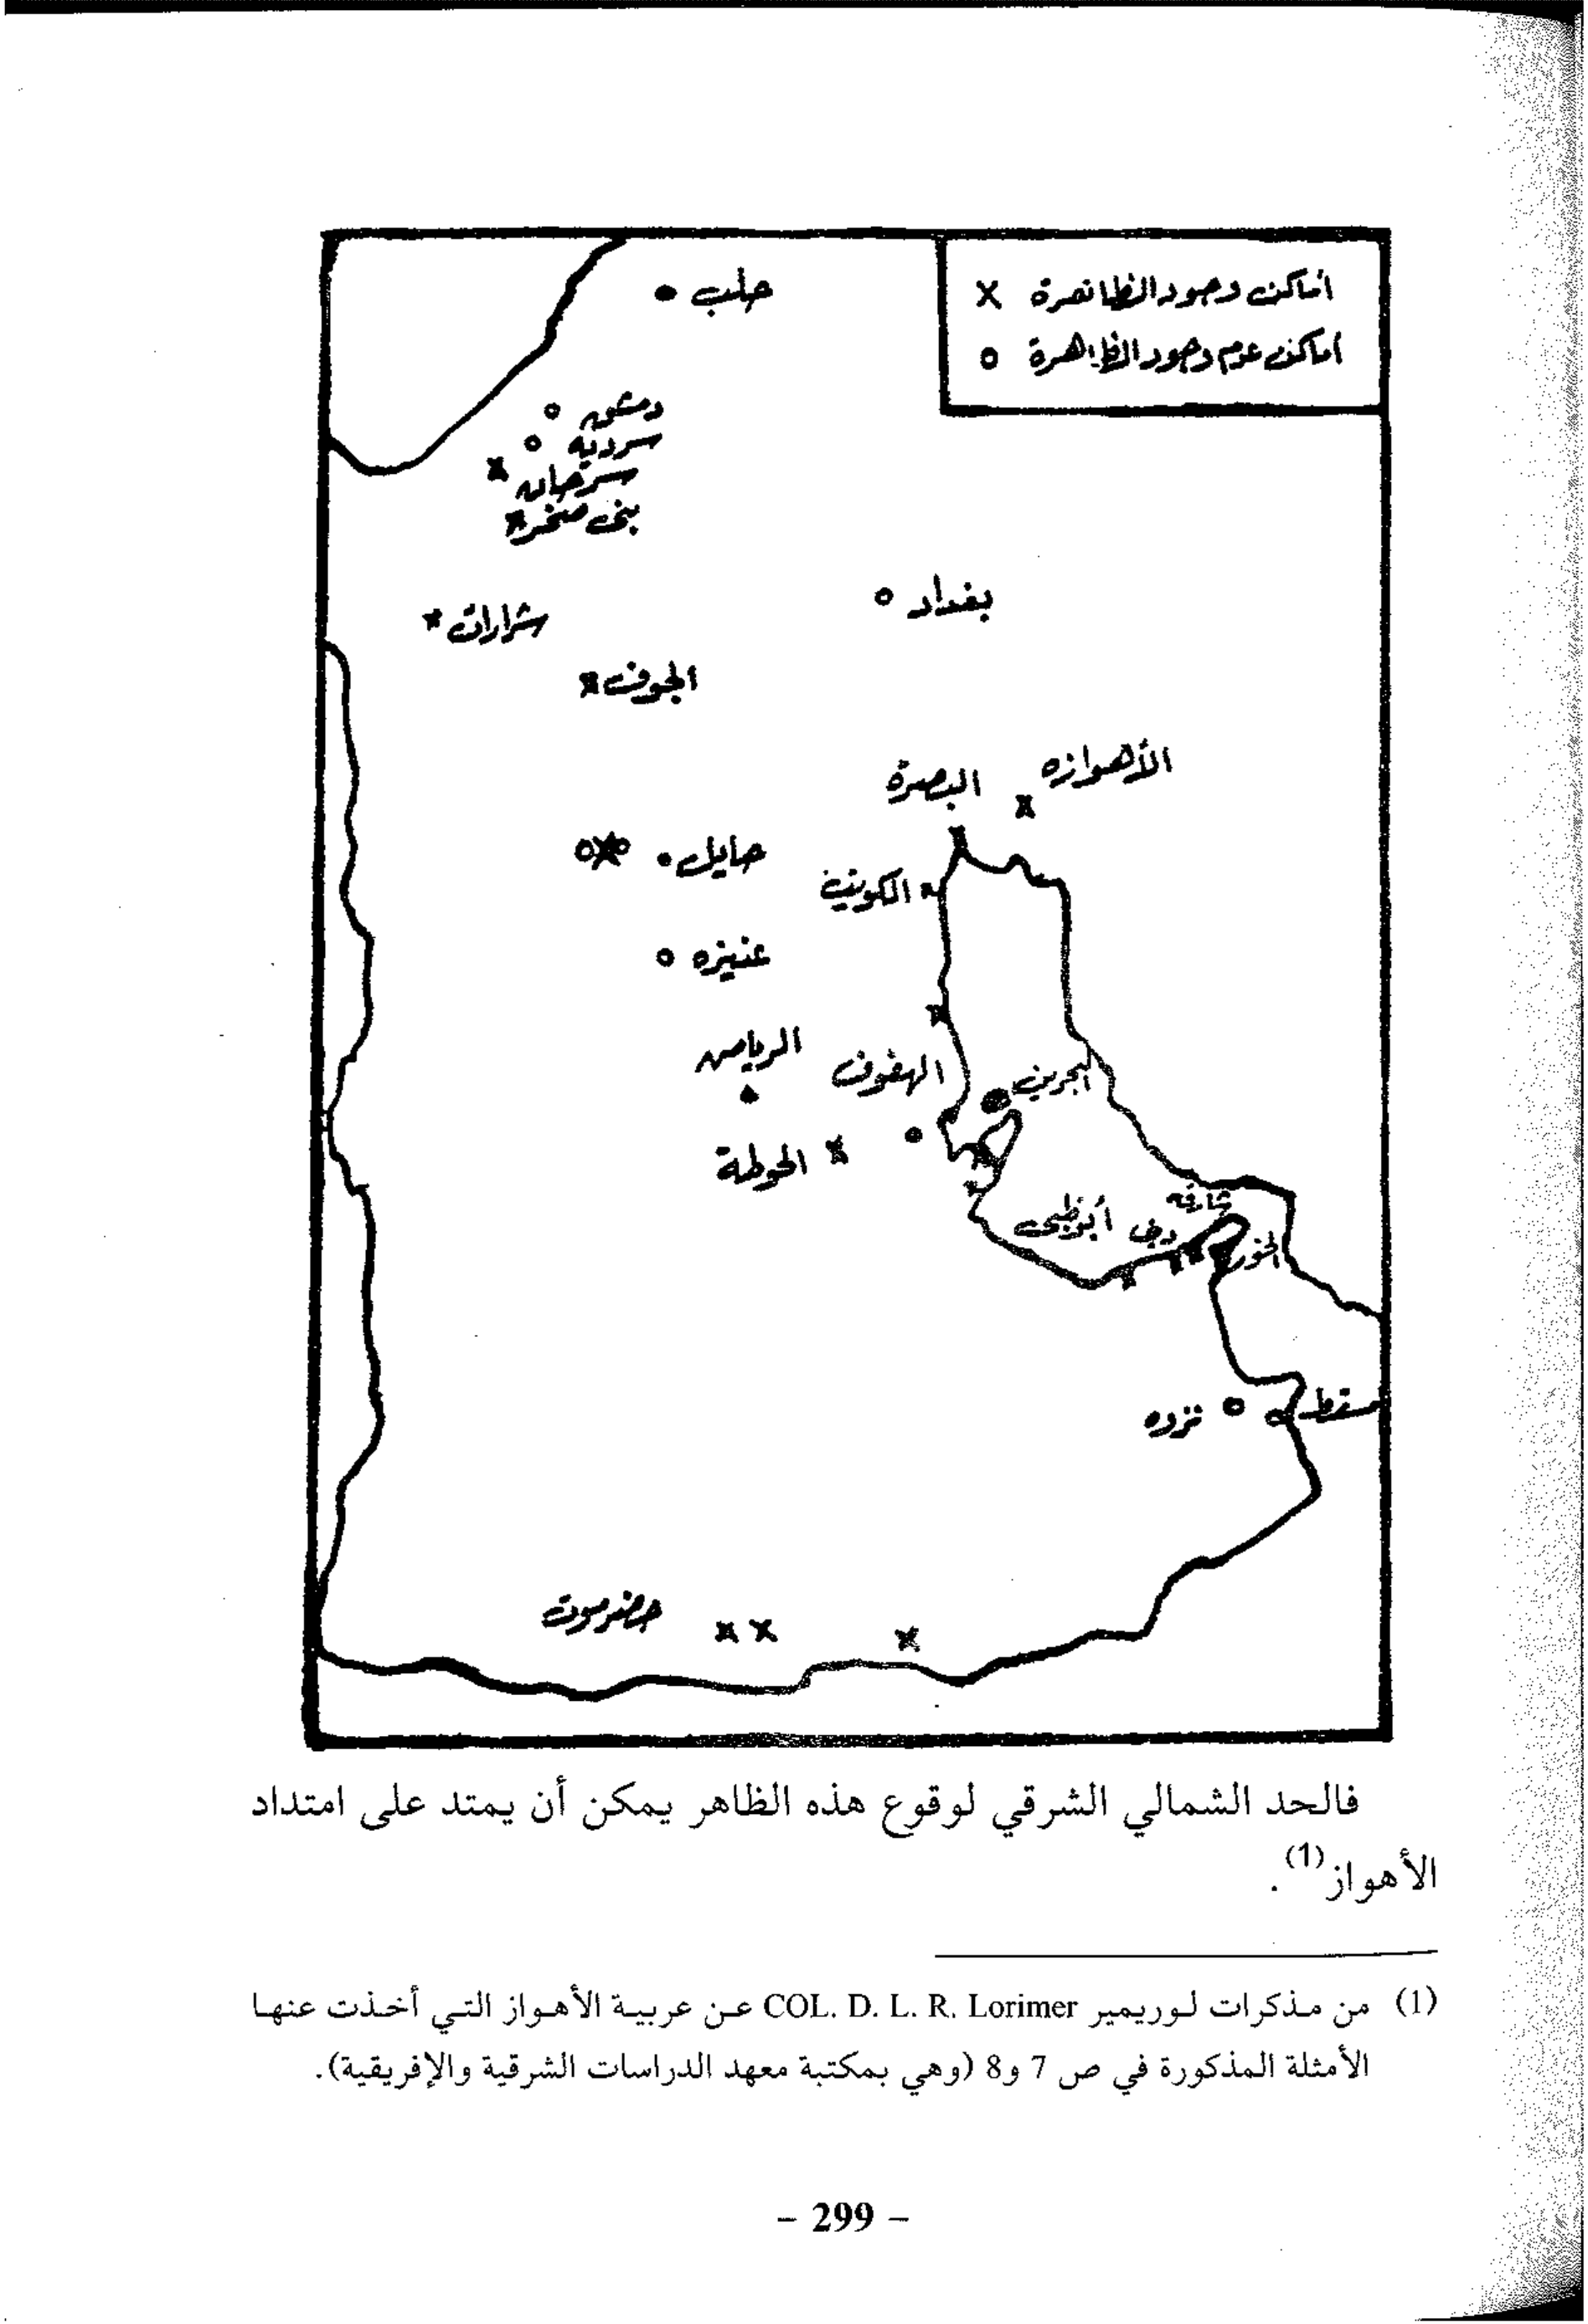 أماكن وجود الظاهرة X
أماكن عدم وجود الظاهرة o
حلب
دمشق
سردية
سرحان
بنى صخر
بغداد
شرارات
الجوف
الأهوازه
البصرة
حايل
الكويت
عنيزه
الرياض
الهفوف
البحرين
الحوطة
شارقه
أبوظبى
دبى
الخور
مسقط
نزده
حضرموت
فالحد الشمالي الشرقي لوقوع هذه الظاهر يمكن أن يمتد على امتداد
الأهواز(1).
(1) من مذكرات لوريمير COL. D. L. R. Lorimer عن عربية الأهواز التي أخذت عنها
الأمثلة المذكورة في ص 7 و8 (وهي بمكتبة معهد الدراسات الشرقية والإفريقية).
- 299 -